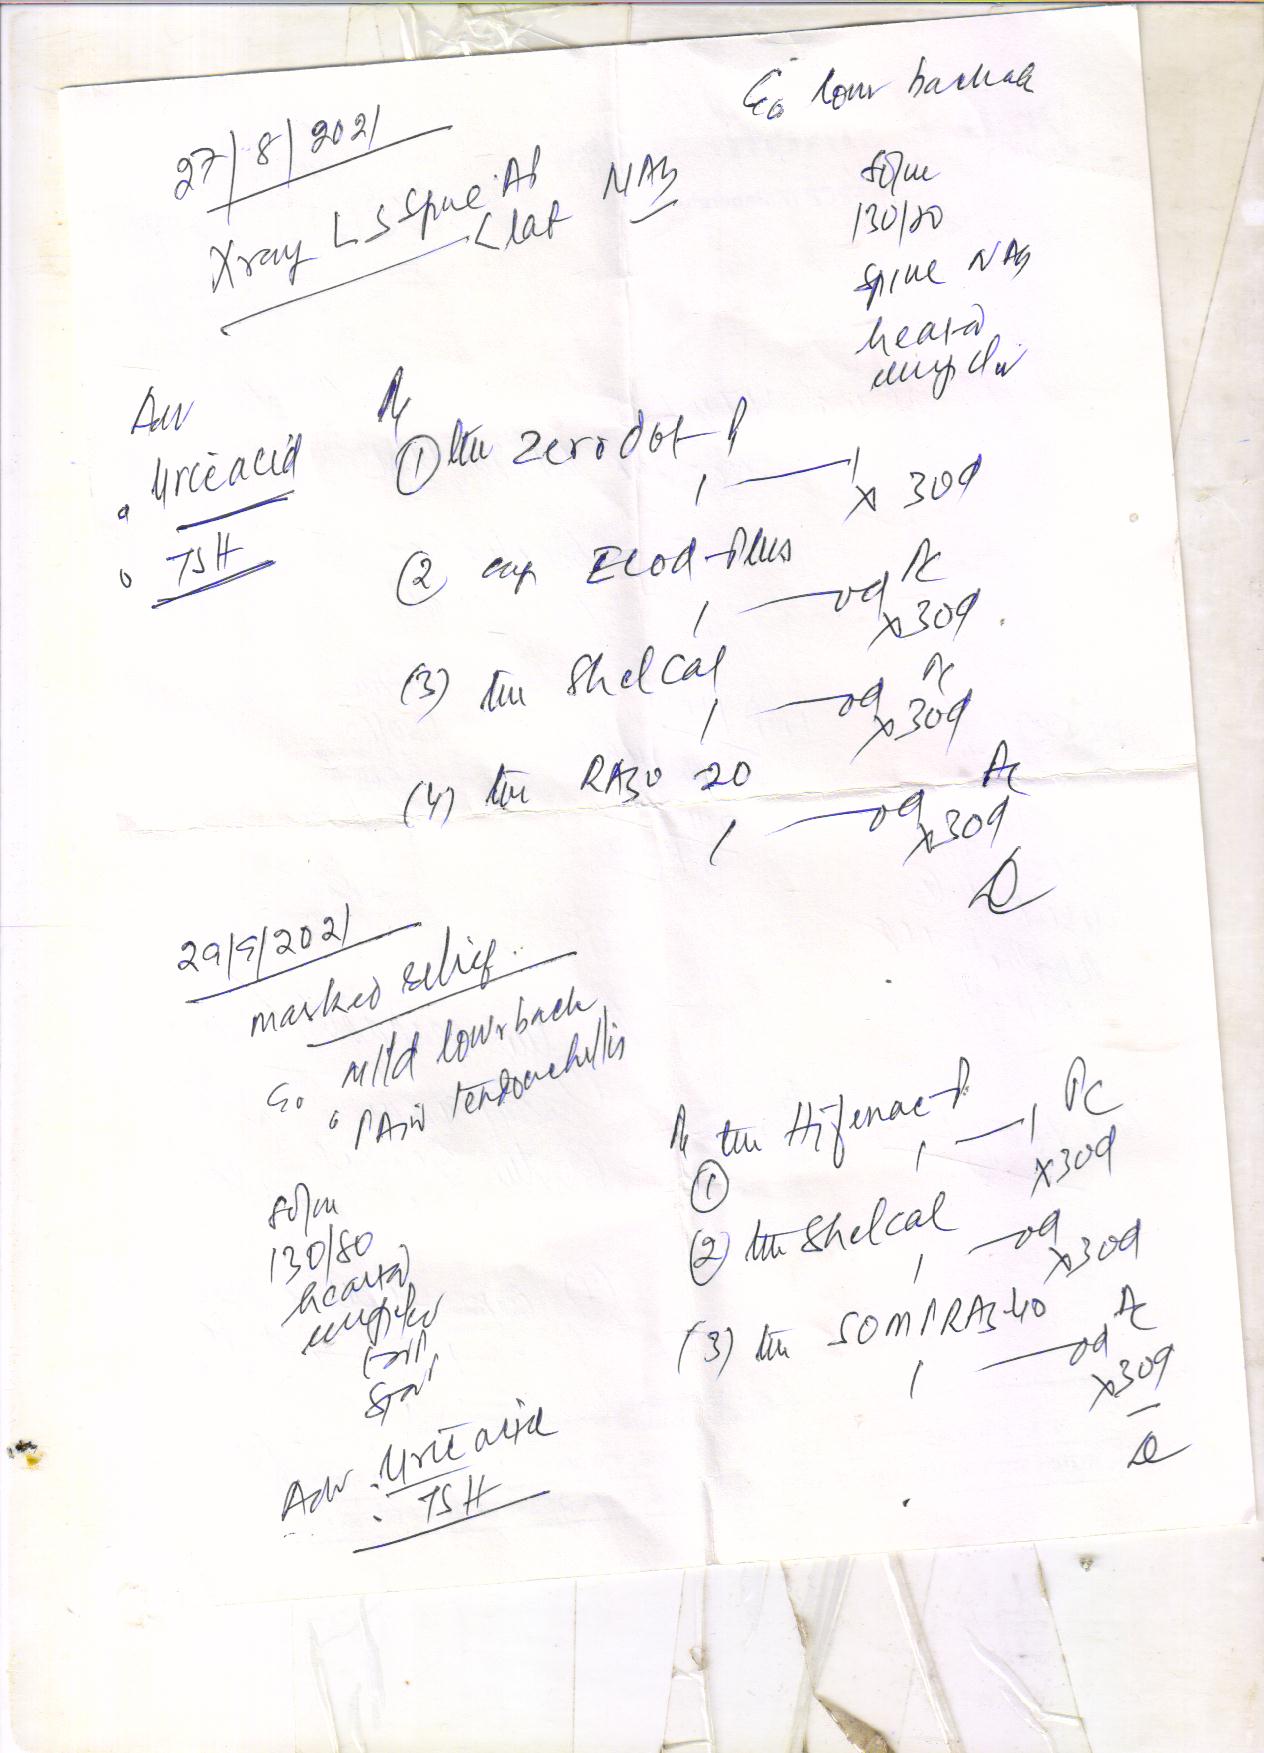 27/8/2021
C/o lower backache
Xray LS Spine AP
< lat NAD
80/m
130/80
Spine NAD
heart
Adv
• Uric acid
• TSH
Rx
(1) Tab Zerodol-P
1 — 1 x 30d
(2) cap Ecod-Plus
1 — od Pc
x 30d
(3) Tab Shelcal
1 — od Pc
x 30d
(4) Tab RAZO 20
1 — od Ac
x 30d
29/9/2021
marked relief
C/o mild lower back
• PAin tendoachillis
80/m
130/80
heart
Adv : Uric acid
: TSH
Rx
(1) Tab Hifenac-P
1 — 1 Pc
x 30d
(2) Tab Shelcal
1 — od
x 30d
(3) Tab SOMPRAZ 40
1 — od Ac
x 30d